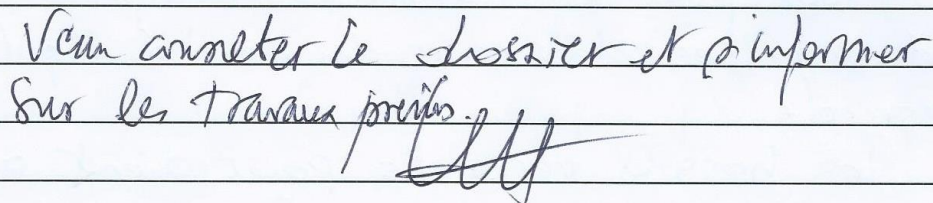 Venu consulter le dossier et s'informer
sur les travaux prévus.